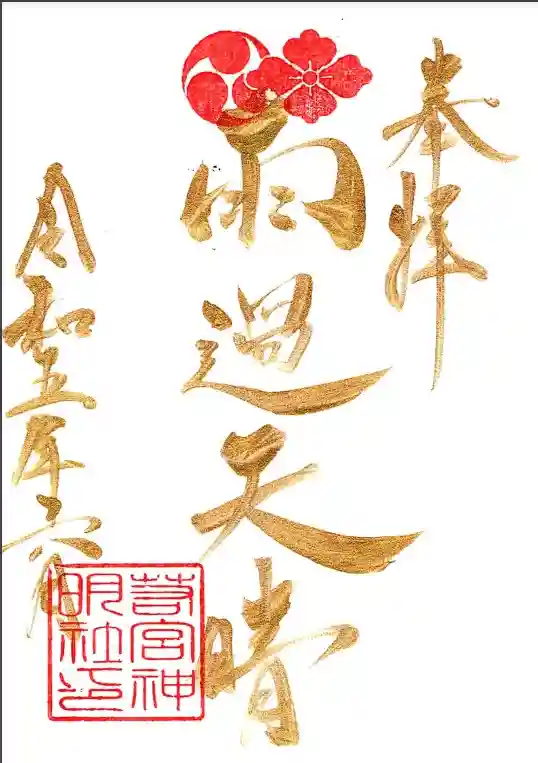 奉拝
雨過天晴
令和五年六月
若宮神明社印